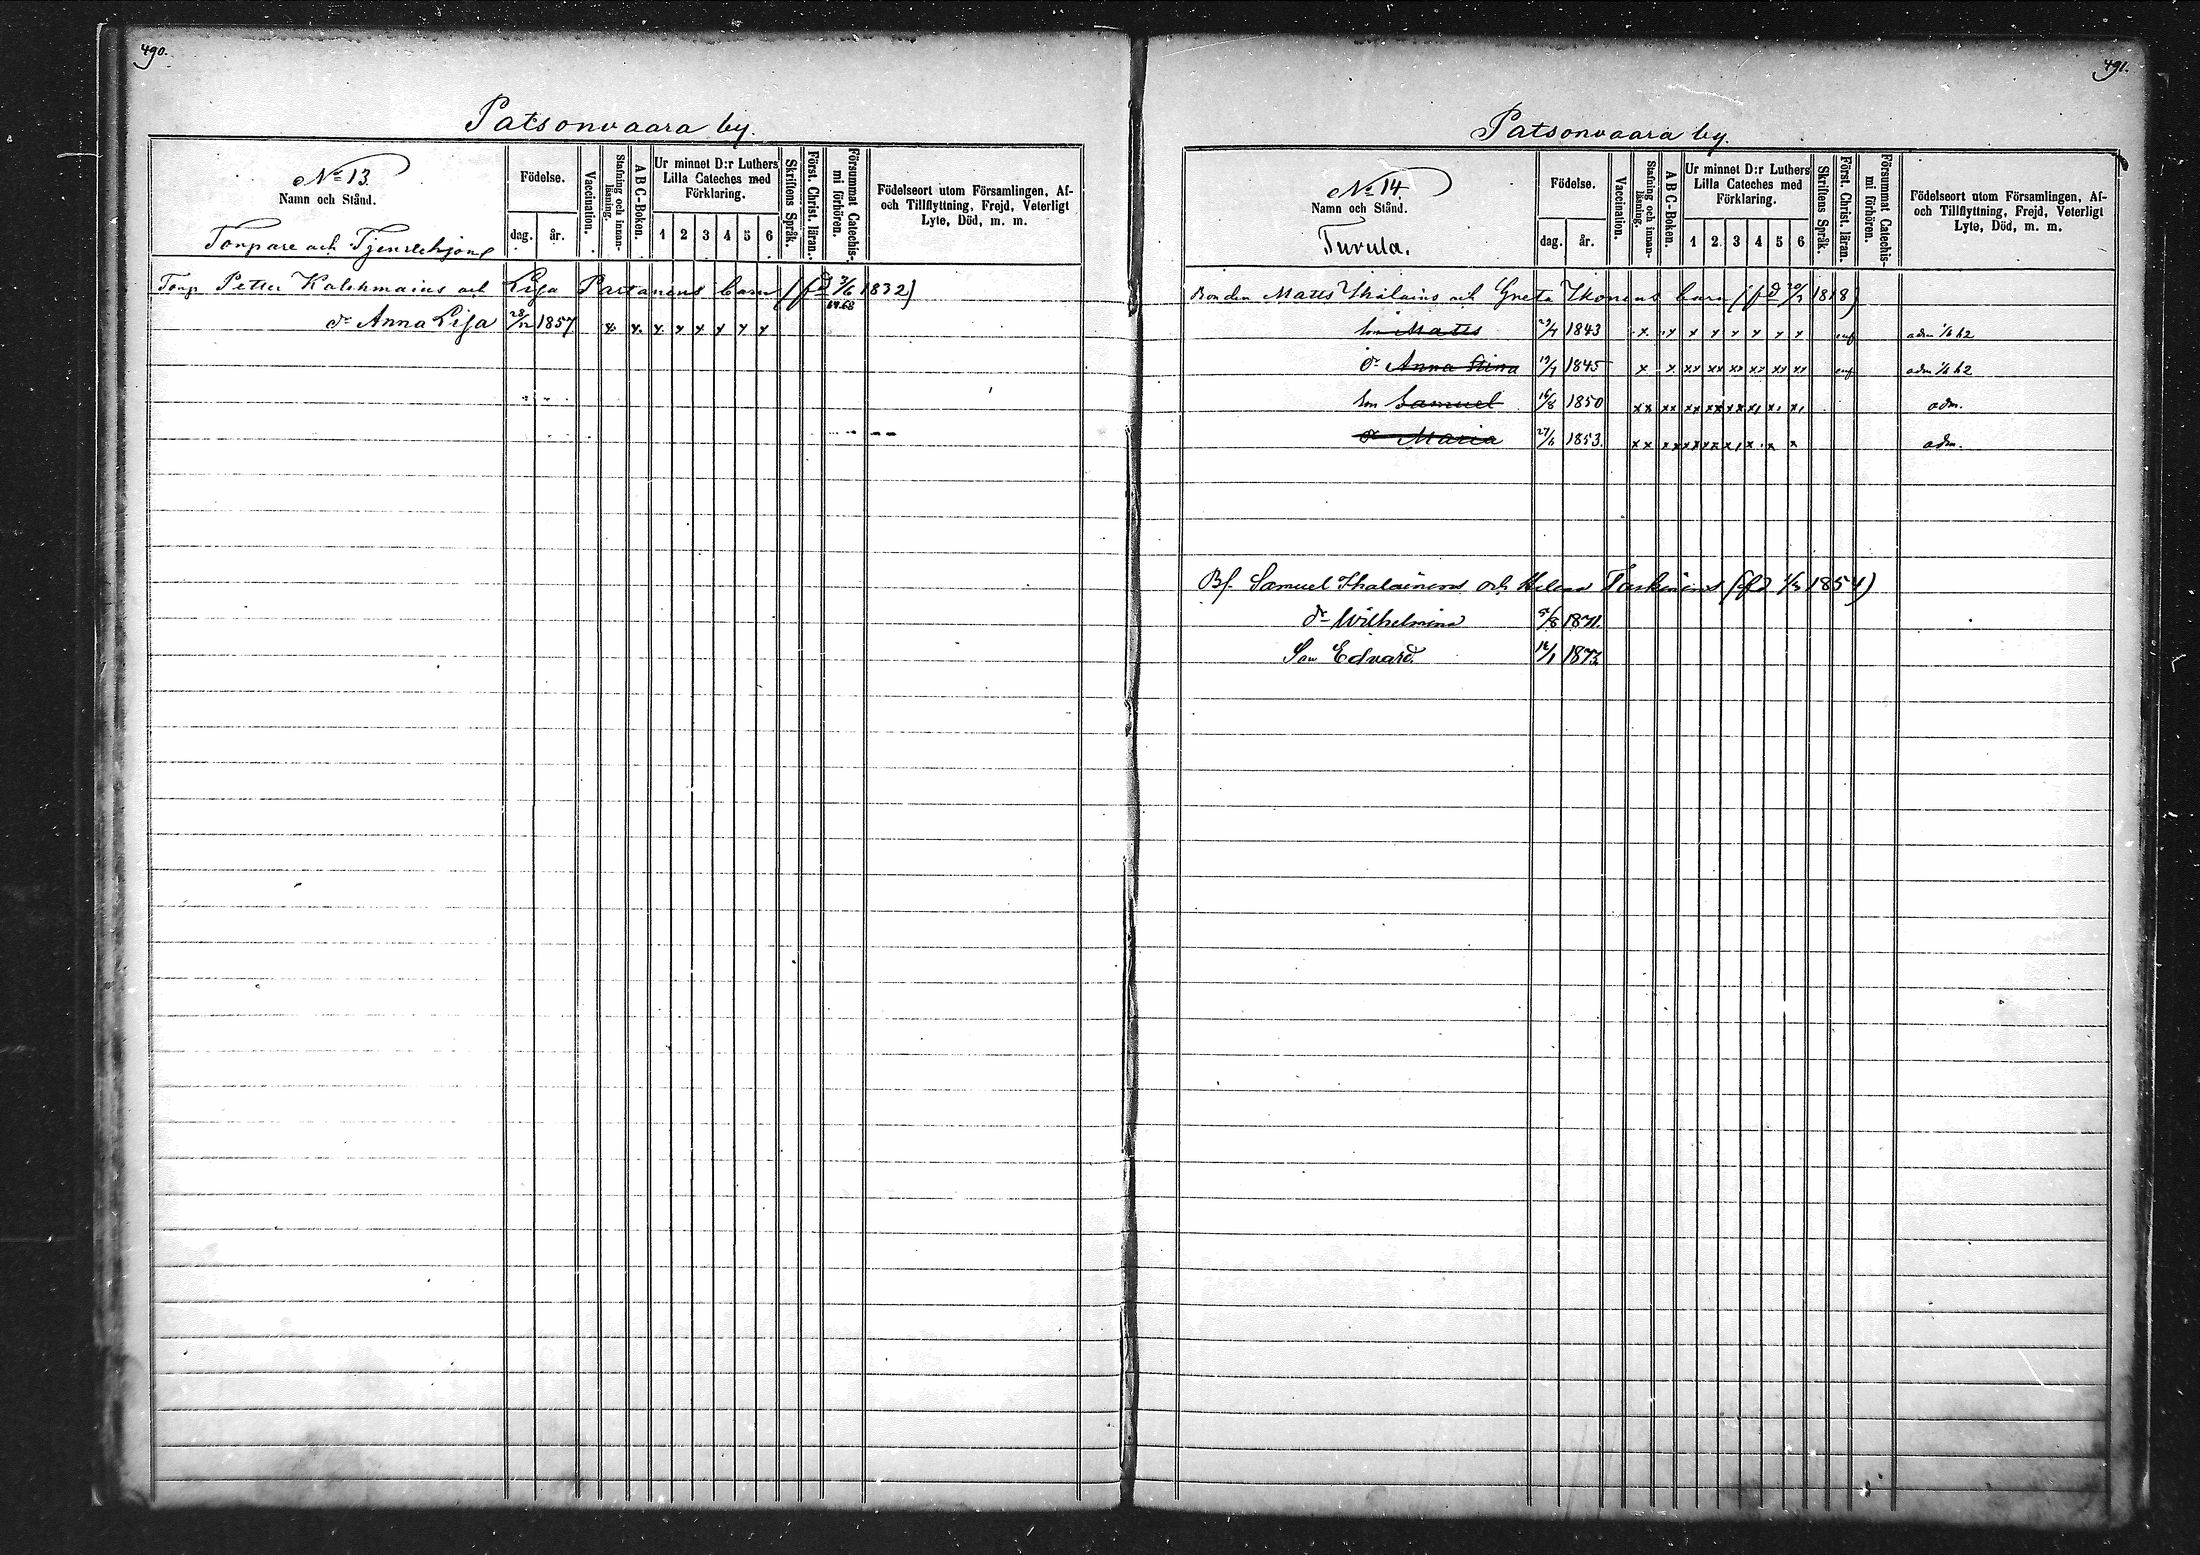 490.
Patsonvaara by.
No 13.
Namn och Stånd.
Torpare och Tjenstehjon
Födelse.
dag.
år.
Vaccination.
Stafning och innan-
läsning.
A B C-Boken.
Ur minnet D:r Luthers
Lilla Cateches med
Förklaring.
1 2 3 4 5 6
Skriftens Språk.
Först. Christ. läran.
Försummat Catechis-
mi förhören.
Födelseort utom Församlingen, Af-
och Tillflyttning, Frejd, Veterligt
Lyte, Död, m. m.
Torp Petter Kolehmains och Lisa Partanens barn (fd 7/6 1832)
dr Anna Lisa 28/12 1857 x x x x x x x x 67.68
491.
Patsonvaara by.
No 14.
Namn och Stånd.
Turula.
Födelse.
dag.
år.
Vaccination.
Stafning och innan-
läsning.
A B C-Boken.
Ur minnet D:r Luthers
Lilla Cateches med
Förklaring.
1 2 3 4 5 6
Skriftens Språk.
Först. Christ. läran.
Försummat Catechis-
mi förhören.
Födelseort utom Församlingen, Af-
och Tillflyttning, Frejd, Veterligt
Lyte, Död, m. m.
Bonden Matts Ihalains och Greta Ikonens barn (fd 20/3 1818)
Son Matts 1843 x x x x x x x x adm 1/6 62
dr Anna Stina 19/7 1845 x x xx xx xx xx xx xx adm 1/6 62
Son Samuel 16/8 1850 xx xx xx xx xx x, x, x, adm.
dr Maria 27/6 1853. xx xx xx xx x, x x x adm.
Bf. Samuel Ihalainens och Helena Taskinens (fd 1/3 1854)
dr Wilhelmina 5/8 1871.
Son Edvard. 12/1 1873